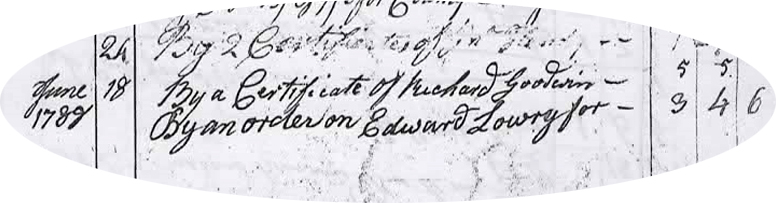 24 By 2 Certificates of
June 18 By a Certificate of Richard Goodwin — 5 5
1788 By an order on Edward Lowry for — 3 4 6